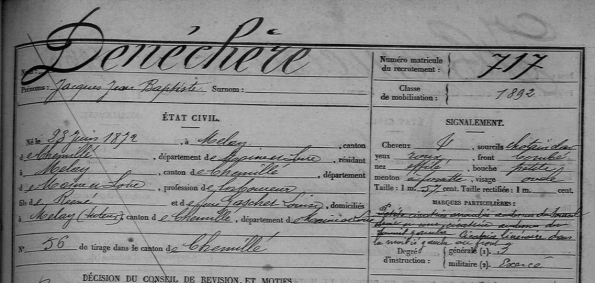 Denéchère
Nom :
Numéro matricule du recrutement : 717
Prénoms : Jacques Jean Baptiste Surnom :
Classe de mobilisation : 1892
ÉTAT CIVIL.
Né le 23 Juin 1872, à Melay, canton
de Chemillé, département de Maine et Loire, résidant
à Melay, canton de Chemillé, département
de Maine et Loire, profession de laboureur
fils de René et de feue Gascher Louise, domiciliés
à Melay, canton de Chemillé, département de Maine et Loire
N° 56 de tirage dans le canton de Chemillé
DÉCISION DU CONSEIL DE REVISION ET MOTIFS.
SIGNALEMENT.
Cheveux, sourcils châtain
yeux roux, front bombé
nez effilé, bouche petite
menton à fossette, visage ovale
Taille : 1 m. 57 cent. Taille rectifiée : 1 m. cent.
MARQUES PARTICULIÈRES :
cicatrice linéaire dans
la main gauche
Degré d'instruction : générale (1). 3
militaire (2). Exercé